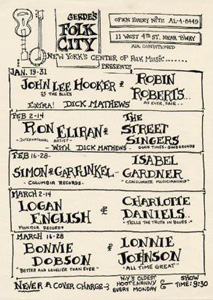 GERDE'S
FOLK
CITY
OPEN EVERY NITE AL-4-8449
11 WEST 4TH ST. NEAR B'WAY
AIR CONDITIONED
NEW YORK'S CENTER OF FOLK MUSIC
PRESENTS
JAN. 19-31
JOHN LEE HOOKER & ROBIN ROBERTS
OF THE BLUES
AS EVER, FAIR...
EXTRA! DICK MATHEWS
FEB 2-14
RON ELIRAN & THE STREET SINGERS
-INTERNATIONAL ARTIST-
GOOD TIMES-
WITH DICK MATHEWS
FEB 16-28-
SIMON & GARFUNKEL - ISABEL GARDNER
-COLUMBIA RECORDS-
"CONSUMMATE MUSICIANSHIP"
MARCH 2-14
LOGAN ENGLISH & CHARLOTTE DANIELS
MONITOR RECORDS
"TELLS THE TRUTH IN BLUES"
MARCH 16-28
BONNIE DOBSON & LONNIE JOHNSON
"BETTER AND LOVELIER THAN EVER"
"ALL TIME GREAT"
NEVER A COVER CHARGE
N.Y'S OLDEST
HOOTENANNY
EVERY MONDAY
SHOW
TIME: 9:30